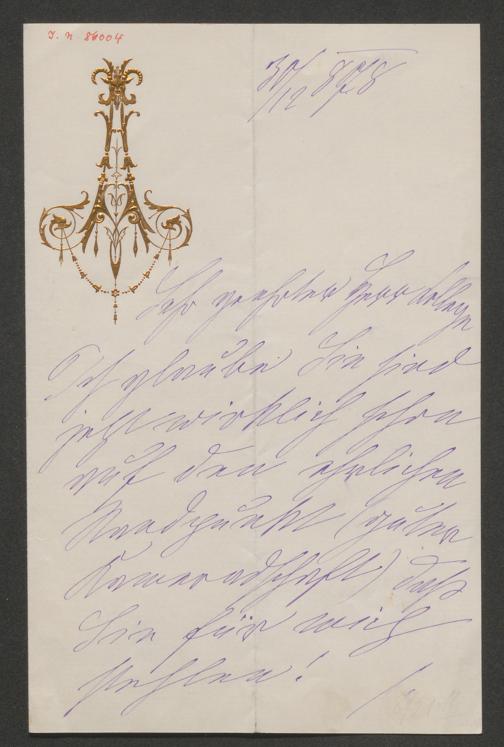 I. N. 88004
30/12 878
Sehr geehrter Herr College
Ich glaube Sie sind
jetzt wirklich schon
auf den ehrlichen
Standpunkt (guter
Kameradschaft) daß
Sie für mich
stehlen!